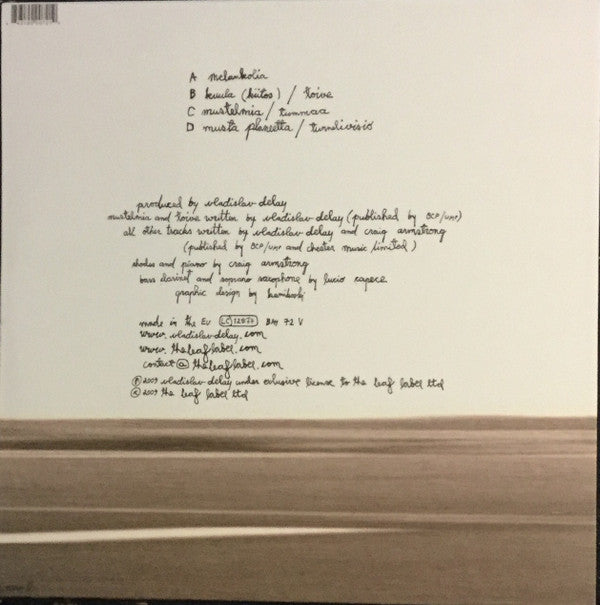 A melankolia
B kuula (kiitos) / toive
C mustelmia / tummaa
D musta planeetta / tunnelivisio
produced by vladislav delay
mustelmia and toive written by vladislav delay (published by BCP/UMP)
all other tracks written by vladislav delay and craig armstrong
(published by BCP/UMP and chester music limited)
rhodes and piano by craig armstrong
bass clarinet and soprano saxophone by lucio capece
graphic design by
made in the EU LC 12877 BAY 72 V
www.vladislavdelay.com
www.theleaflabel.com
contact@theleaflabel.com
℗ 2009 vladislav delay under exlusive license to the leaf label ltd
© 2009 the leaf label ltd